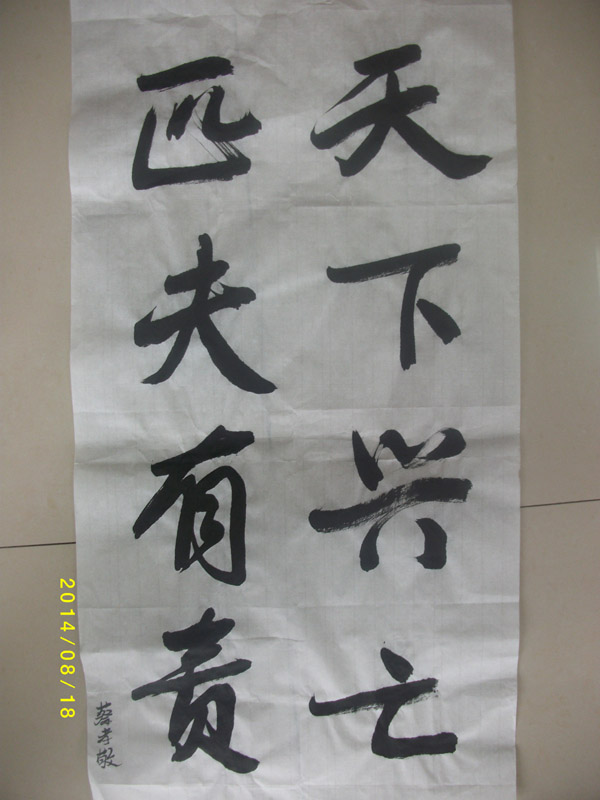 天下兴亡
匹夫有责
蔡孝敬
2014/08/18